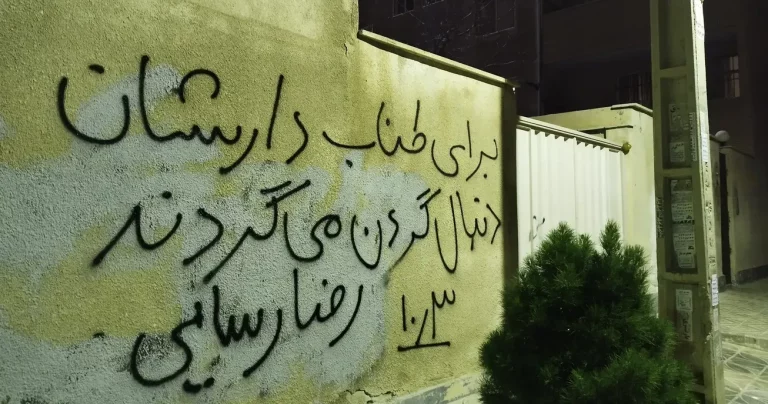 برای طناب دارشان
دنبال گردن می‌گردند
رضا رسایی
۱۰۳